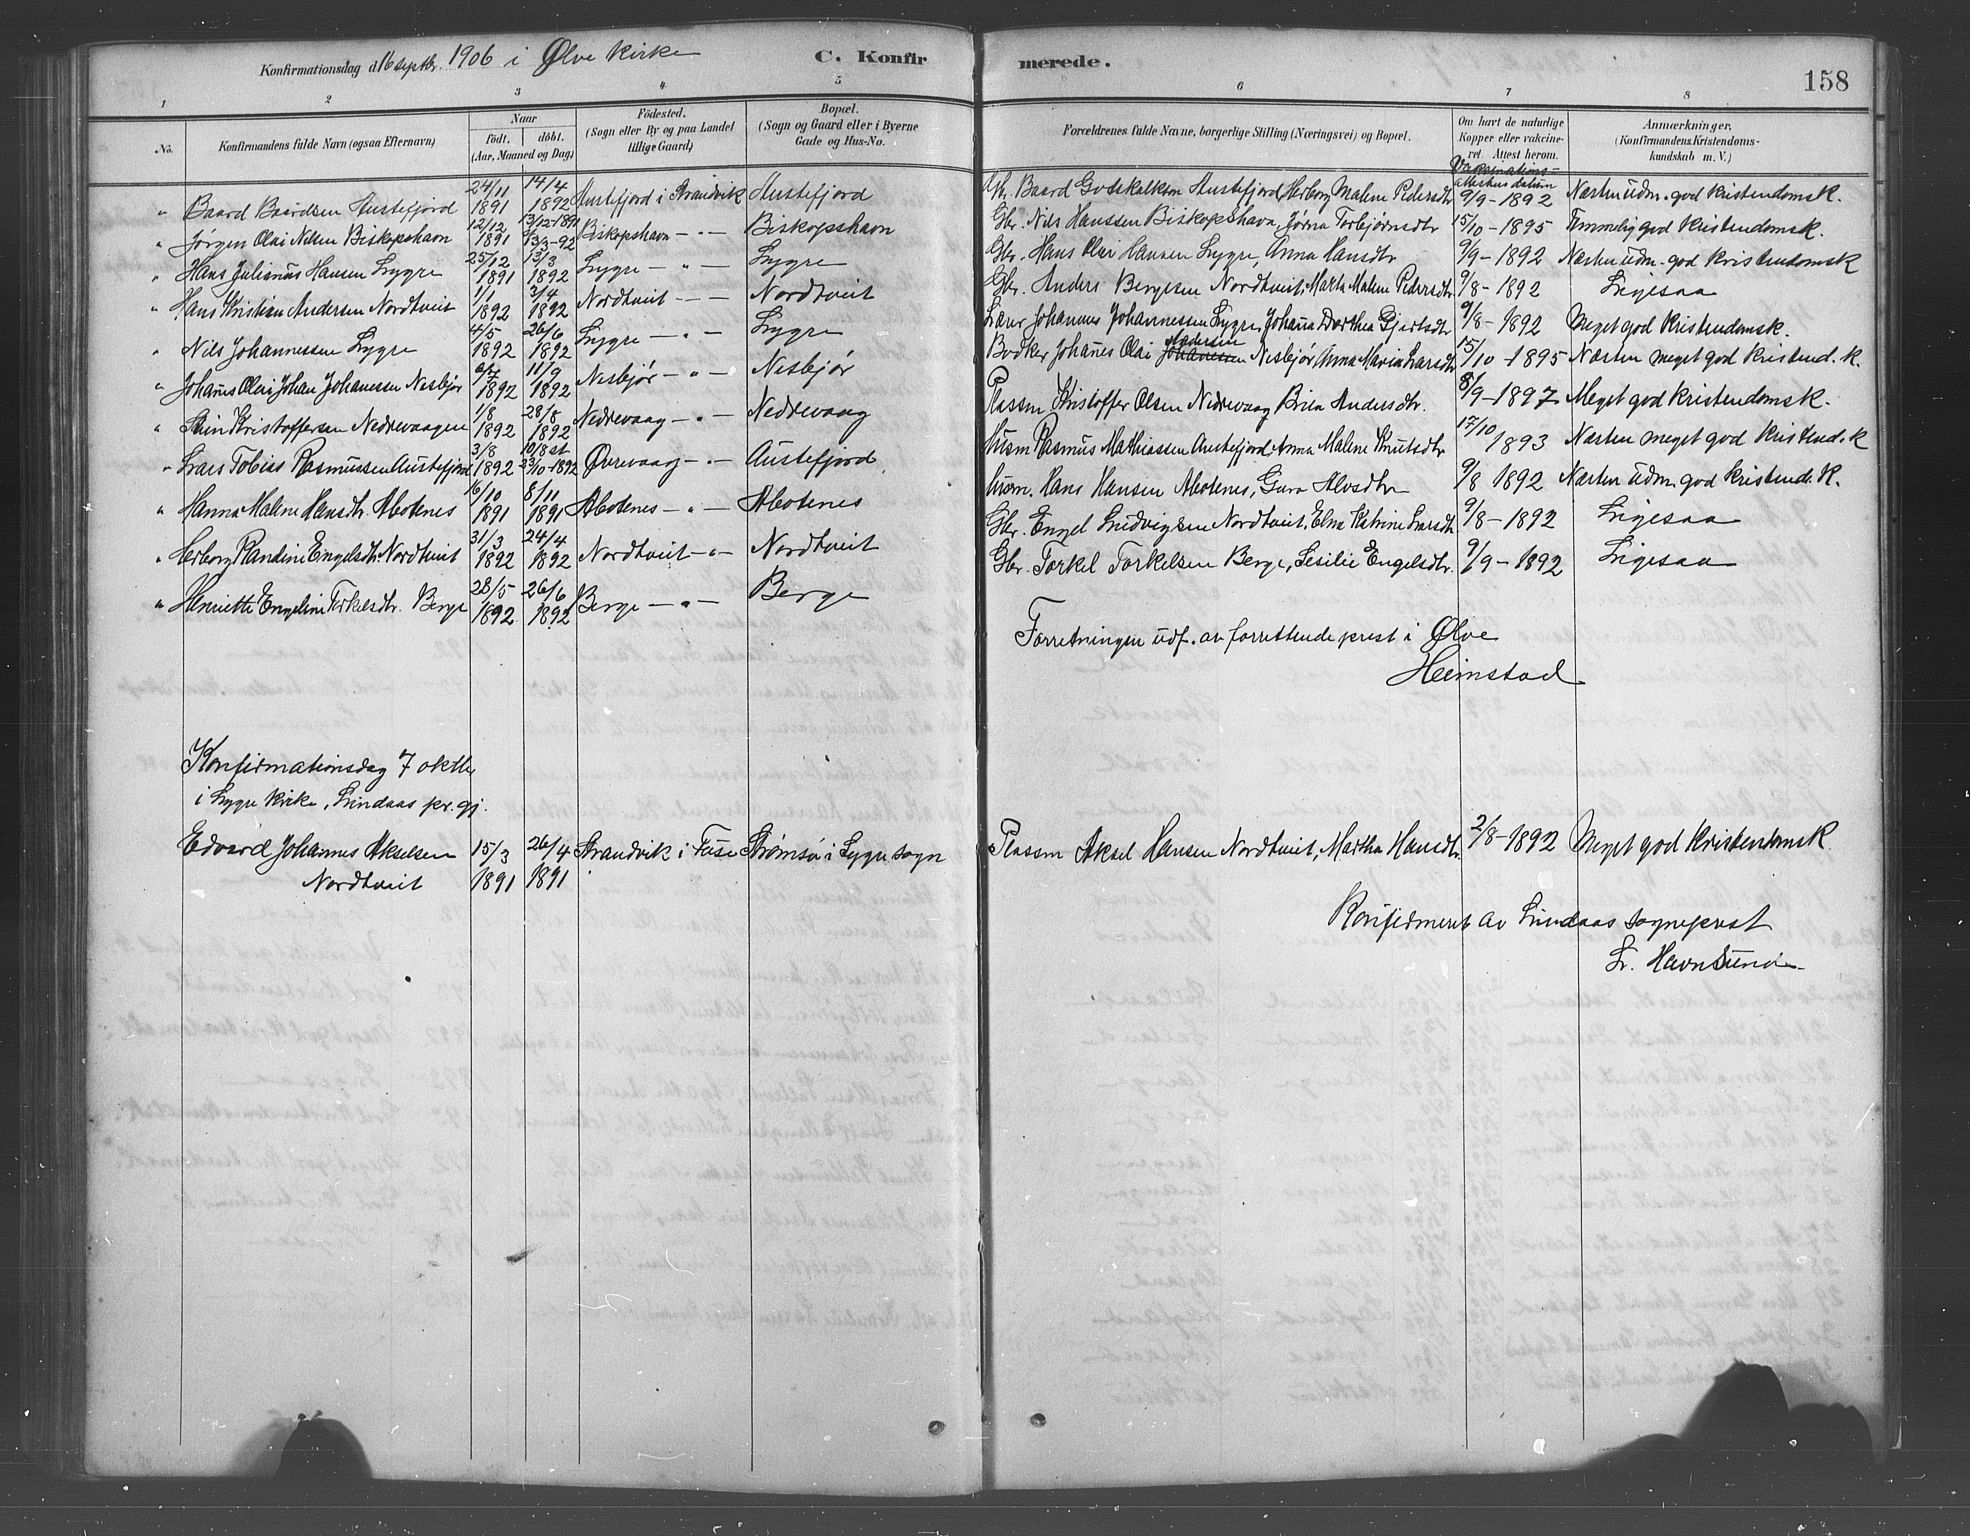 Konfirmationsdag d. 16 septbr. 1906 i Ølve kirke C. Konfir merede. 158
1 2 3 4 5 6 7 8
No. Konfirmandens fulde Navn (ogsaa Efternavn) Naar født. døbt. (Aar, Maaned og Dag) Fødested. (Sogn eller By og paa Landet tillige Gaard.) Bopæl. (Sogn og Gaard eller i Byerne Gade og Hus-No. Forældrenes fulde Navne, borgerlige Stilling (Næringsvei) og Bopæl. Om havt de naturlige Kopper eller vakcineret. Attest herom. Anmærkninger. (Konfirmandens Kristendomskundskab m. V.)
Vaksinations-attestens datum
" Baard Baardsen Austefjord 24/11 1891 14/4 1892 Austefjord i Strandvik Austefjord Gbr. Baard Gotskalksen Austefjord, Herborg Malene Pedersdtr 9/9-1892 Næsten udm. god kristendomsk.
" Jørgen Olai Nilsen Biskopshavn 12/12 1891 13/12-1891 13/3-92 Biskopshavn - " - Biskopshavn Gbr. Nils Hanssen Biskopshavn, Jørna Torbjørnsdtr 15/10-1895 Temmelig god kristendomsk.
" Hans Julianus Hansen Lygre 25/12 1891 13/3 1892 Lygre - " - Lygre Gbr. Hans Olai Hansen Lygre, Anna Hansdtr 9/9-1892 Næsten udm. god kristendomsk
" Hans Kristian Andersen Nordtveit 1/1 1892 3/4 1892 Nordtveit - - Nordtveit Gbr. Anders Bergesen Nordtveit, Marta Malene Pedersdtr 9/8-1892 Ligesaa
" Nils Johannessen Lygre 4/5 1892 26/6 1892 Lygre - " - Lygre Lærer Johannes Johannessen Lygre, Johana Dorthea Gjertsdtr 9/8-1892 Meget god kristendomsk.
" Johans Olai Johan Johanessen Nesbjør 6/7 1892 11/9 1892 Nesbjør - " - Nesbjør Bødker Johanes Olai Johanessen Andersen Nesbjør Anna Maria Larsdtr 15/10-1895 Næsten meget god kristend.k.
" Stein Kristoffersen Nedrevaagen 1/8 1892 28/8 1892 Nedrevaag - " - Nedrevaag Plassm Kristoffer Olsen Nedrevaag Brita Andersdtr. 8/9-1897 Meget god kristendomsk.
" Lars Tobias Rasmussen Austefjord 3/8 1892 10/8 st 23/10-1892 Øvrevaag - " - Austefjord Husm Rasmus Mathiassen Austefjord, Anna Malene Knutsdtr 17/10 1893 Næsten meget god kristend.k
" Hanna Malene Hansdtr. Abotenes 16/10 1891 8/11 1891 Abotenes - " - Abotenes Husm. Hans Hansen Abotenes, Guro Alvsdtr 9/8 1892 Næsten udm. god kristend.k.
" Herborg Randine Engelsdtr. Nordtveit 31/3 1892 24/4 1892 Nordtveit - " - Nordtveit Gbr. Engel Ludvigsen Nordtveit, Elna Katrine Larsdtr 9/8-1892 Ligesaa
" Henriette Engeline Torkelsdtr. Berge 28/5 1892 26/6 1892 Berge - " - Berge Gbr Torkel Torkelsen Berge, Sesilie Engelsdtr. 9/9-1892 Ligesaa
Forretningen udf. av forrettende prest i Ølve
Heimstad
Konfirmationsdag 7 oktbr
i Lygre kirke, Lindaas pr.gj.
Edvard Johannes Akselsen Nordtveit 15/3 1891 26/4 1891 Strandvik i Fuse Strømsø i Lygre sogn Plassm Aksel Hansen Nordtveit, Martha Hansdtr. 2/8-1892 Meget god kristendomsk
Konfirmert av Lindaas sogneprest
L. Havnsund